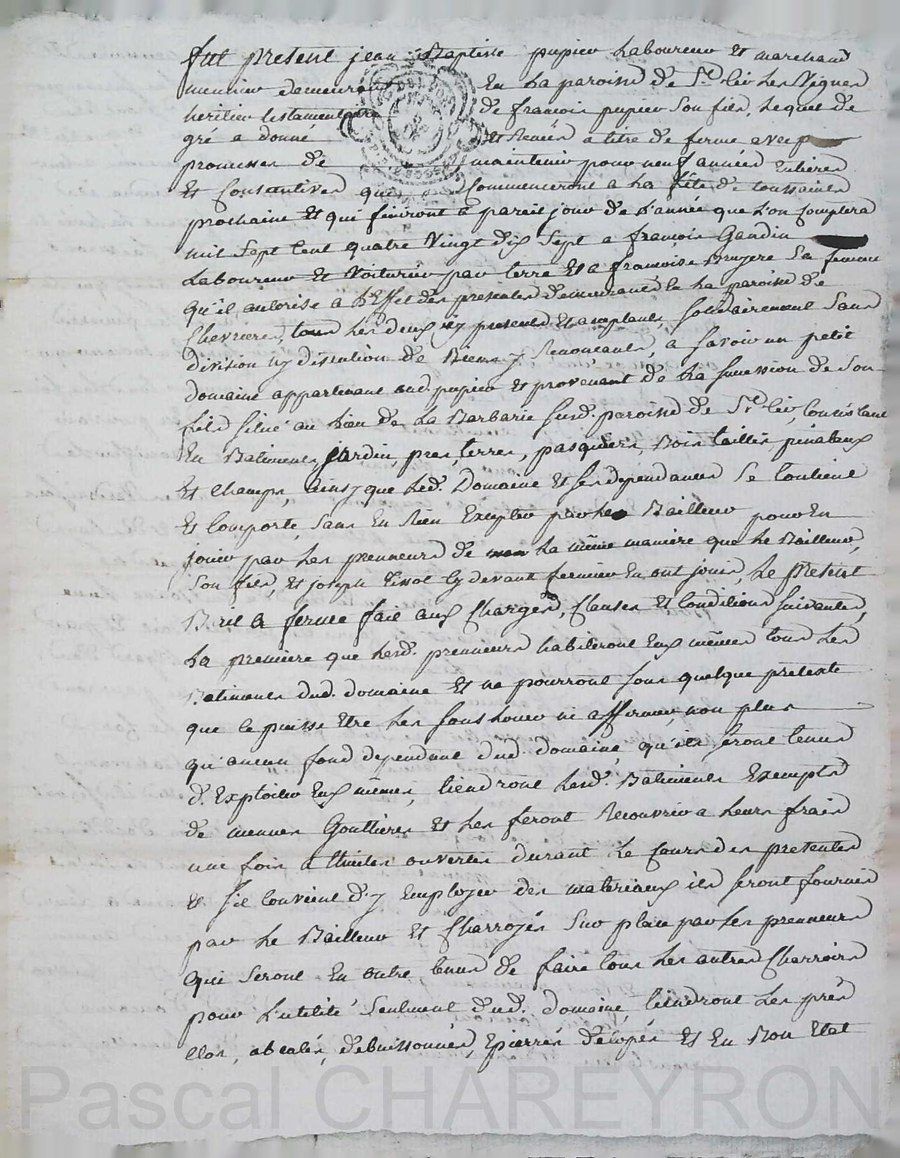 fut present jean Baptiste pupier Laboureur et marchand
meunier demeurant En La paroisse de St
heritier testamentaire de francois pupier Son fils, Lequel de
gré a donné et à titre de ferme avec
promesses de maintenir pour neuf années Entieres
Et Consecutives qui Commenceront a La fête de toussaints
prochaine Et qui finiront a pareil jour de L'année que L'on Comptera
mil Sept Cent quatre Vingt dix Sept a francois Gandin
Laboureur Et Voiturier par terre Et a francoise Bruyere Sa femme
qu'il autorise a L'Effet des presentes demeurants En La paroisse de
Chevrieres, tous Les deux icy presents Et acceptants, solidairement Sans
division ny discution de Biens y Renonceants, a savoir un petit
domaine appartenant aud. pupier Et provenant de La succession de Son
fils situé au Lieu de La Barbarie susd. paroisse de St Consistant
En Batiments, jardin, pres, terres, pasquiers, Bois taillis pinateaux
Et champs, ainsy que Led. Domaine Et ses dependances Se Contient
Et Comporte, Sans En Rien Excepter par Le Bailleur pour En
jouir par Les prenneurs de La même maniere que Le Bailleur,
Son fils, Et joseph cy devant fermier En ont joui, Le present
Bail a ferme fait aux Charges, Clauses Et Conditions suivantes,
La premiere que Lesd. prenneurs habiteront Eux mêmes tous Les
Batiments dud. domaine Et ne pourront sous quelque pretexte
que ce puisse Etre Les sous Louer ni affermer non plus
qu'aucun fond dependant dud. domaine, qu'ils seront tenus
d'Exploiter Eux mêmes, tiendront Lesd. Batiments Exempts
de menues Gouttieres Et Les feront Recouvrir a Leurs frais
une fois a thuiles ouvertes durant Le Cours des presentes
Et s'il Convient d'y Employer des materiaux ils seront fournis
par Le Bailleur Et Charroyés Sur place par Les prenneurs
qui seront En outre tenus de faire tous Les autres Charrois
pour L'utilité Seulment dud. domaine, tiendront Les prés
clos, debuissonnés, Epierrés Et En Bon Etat
Pascal CHAREYRON